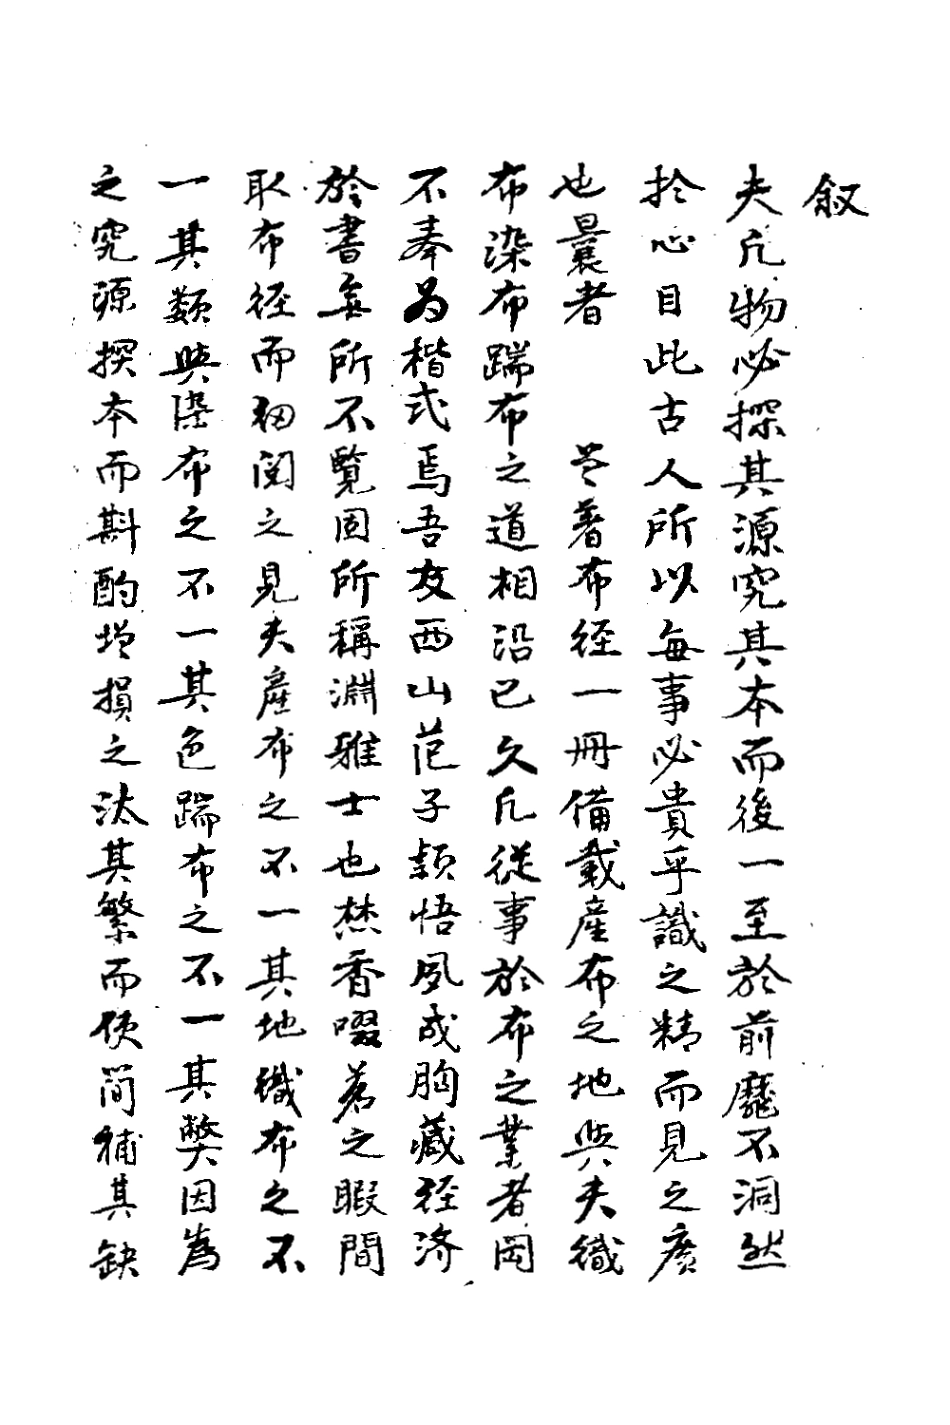 叙
夫凡物必探其源究其本而後一至於前靡不洞然
扵心目此古人所以每事必貴乎識之精而見之廣
也曩者 著布経一冊備載産布之地與夫織
布染布踹布之道相沿已久凡從事於布之業者罔
不奉为楷式焉吾友西山范子頴悟夙成胸藏経济
於書無所不覧固所稱淵雅士也焚香啜茗之暇間
取布経而细閲之見夫産布之不一其地織布之不
一其類與染布之不一其色踹布之不一其獘因為
之究源探本而斟酌增損之汰其繁而使简補其缺